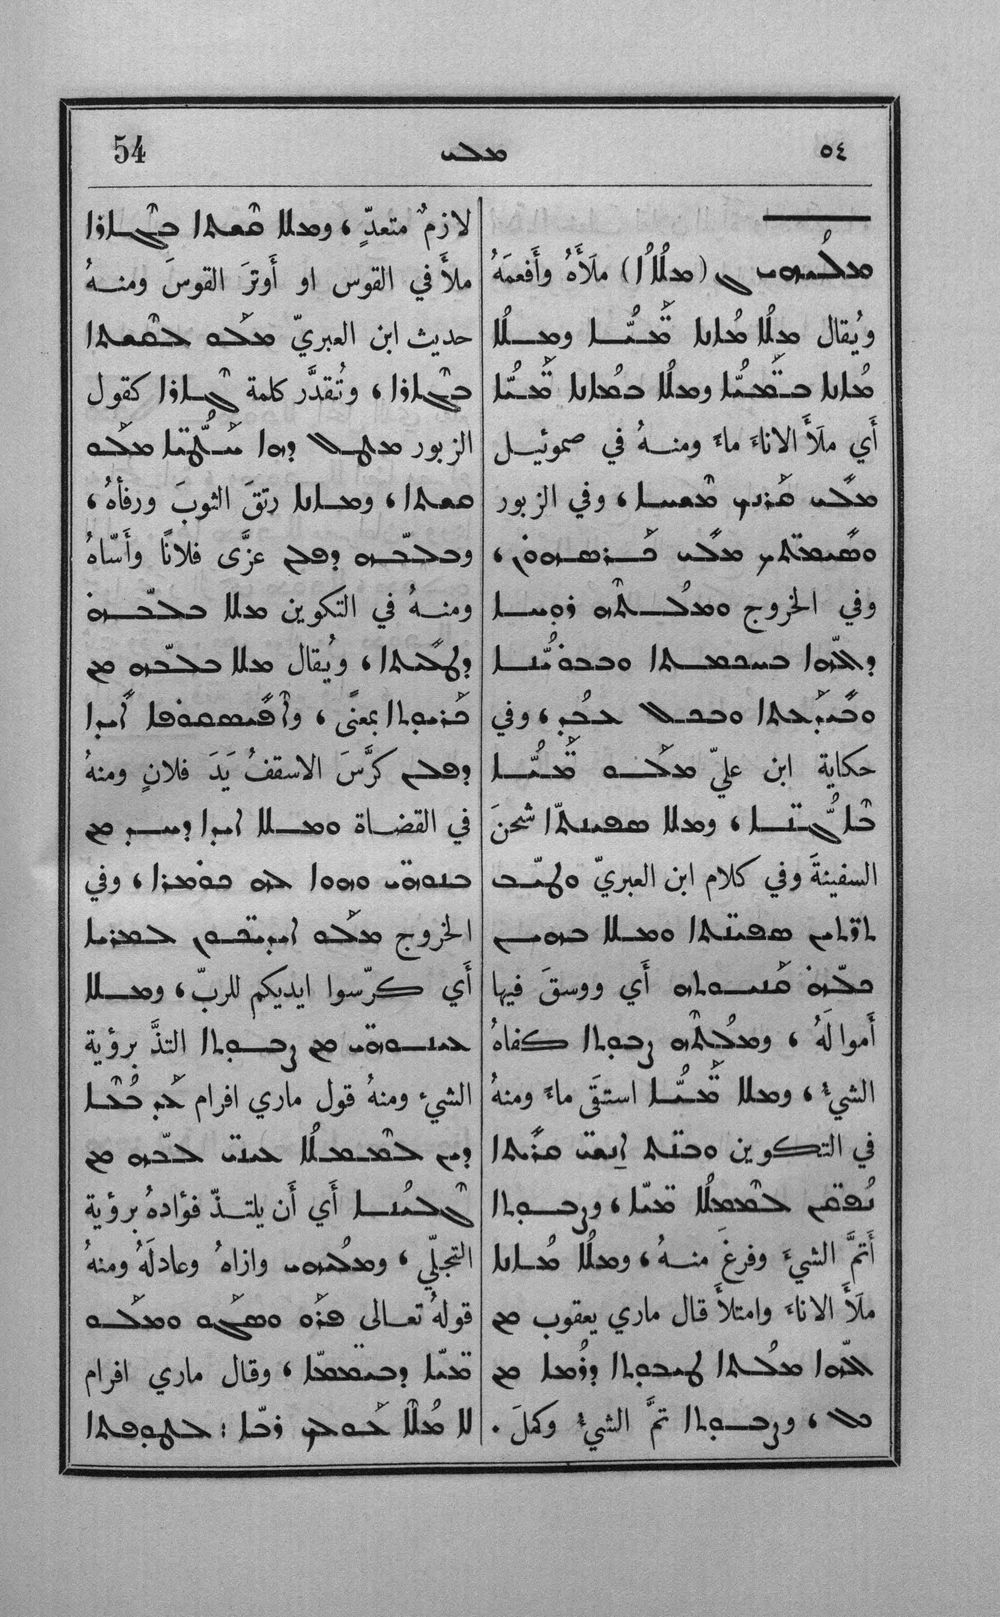 54
ܡܠܝ
٥٤
ܡܠܳܝܗܝ (ܡܠܳܐܳ) ملَأَهُ وأَفعمَهُ
ويُقال ܡܠܳܐ ܡܳܐܢܐ ܡܰܝ̈ܳܐ ܘܡܠܳܐ
ܡܳܐܢܐ ܒܡܰܝ̈ܳܐ ܘܡܠܳܐ ܒܡܳܐܢܐ ܡܰܝ̈ܳܐ
أَي ملَأَ الاناءَ ماءً ومنهُ في صموئيل
ܡܠܝ ܩܰܪܢܟ ܡܫܚܐ ، وفي الزبور
ܡܠܝ ܟܪܣܗܘܢ ،
وفي الخروج ܘܡܠܳܬܗ ܪܘܚܐ
ܕܐܠܗܐ ܒܚܟܡܬܐ
ܘܒܟܠ ܥܒܳܕ ، وفي
حكاية ابن عليّ ܡܠܰܘ ܡܰܝ̈ܳܐ
، ܘܡܠܐ ܣܦܝܢܬܐ شحنَ
السفينةَ وفي كلام ابن العبريّ ܘܛܝܒ
ܣܦܝܢ̈ܬܐ ܘܡܠܐ ܒܗܝܢ
ܟܠܗ ܩܢܝܢܗ أَي ووسقَ فيها
أَموالَهُ ، ܘܡܠܳܬܗ ܨܒܘܬܐ كفاهُ
الشيءُ ، ܘܡܠܐ ܡܰܝ̈ܳܐ استقَى ماءً ومنهُ
في التكوين ܘܒܢ̈ܬ ܐܢܫ̈ܝ ܩܪܝܬܐ
ܢܳܦܩܢ ܠܡܡܠܳܐ ܡܝ̈ܐ ، ܘܨܒܘܬܐ
أَتمَّ الشيءَ وفرغَ منهُ ، ܘܡܠܳܐ ܡܳܐܢܐ
ملَأَ الاناءَ وامتلأَ قال ماري يعقوب ܡܢ
ܐܠܗܐ ܡܠܳܬܐ ܛܝܒܘܬܐ ܕܪܳܡܐ ܡܢ
ܟܠ ، ܘܨܒܘܬܐ تمَّ الشيءُ وكملَ .
لازمٌ متعدٍّ ، ܘܡܠܐ ܩܫܬܐ ܒܓܐܪܐ
ملأَ في القوس او أَوترَ القوسَ ومنهُ
حديث ابن العبريّ ܡܠܰܘ ܠܩܫܬܐ
ܒܓܐܪܐ ، وتُقدَّر كلمة ܓܐܪܐ كقول
الزبور ܡܛܠ ܕܗܐ ܚܰܛܳܝ̈ܐ ܡܠܰܘ
ܩܫܬܐ ، ܘܡܐܢܐ رتقَ الثوبَ ورفأهُ ،
ܘܒܠܒܗ ܕܦܠܢ عزَّى فلانًا وأَسّاهُ
ومنهُ في التكوين ܡܠܐ ܒܠܒܗ
ܕܛܠܝܬܐ ، ويُقال ܡܠܐ ܒܠܒܗ ܡܢ
بمعنًى ، ܘܐܦܝܣܩܘܦܐ ܐܝܕܐ
ܕܦܠܢ كرَّسَ الاسقفُ يَدَ فلانٍ ومنهُ
في القضاة ܘܡܠܐ ܐܝܕܐ ܕܚܕ ܡܢ
ܒܢܘ̈ܗܝ ܘܗܘܐ ܠܗ ܟܘܡܪܐ ، وفي
الخروج ܡܠܰܘ ܐܝܕܝ̈ܟܘܢ ܠܡܪܝܐ
أَي كرّسوا ايديكم للربّ ، ܘܡܠܐ
ܥܝܢܘ̈ܗܝ ܡܢ ܨܒܘܬܐ التذَّ برؤية
الشيء ومنهُ قول ماري افرام
ܠܡܡܠܳܐ ܥܝܢ̈ܝ ܠܒܗ ܡܢ
ܓܠܝܳܢܐ أَي أَن يلتذّ فؤادهُ برؤية
التجلّي ، ܘܡܠܳܝܗܝ وازاهُ وعادلَهُ ومنهُ
قولهُ تعالى ܦܪܰܘ ܘܣܓܰܘ ܘܡܠܰܘ
ܡܝ̈ܐ ܕܒܝܡ̈ܡܐ ، وقال ماري افرام
ܠܐ ܡܳܠܐ